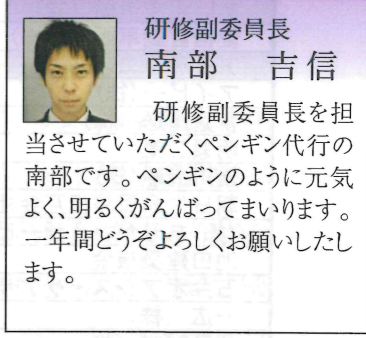 研修副委員長
南部　吉信
研修副委員長を担
当させていただくペンギン代行の
南部です。ペンギンのように元気
よく、明るくがんばってまいります。
一年間どうぞよろしくお願いいたし
ます。